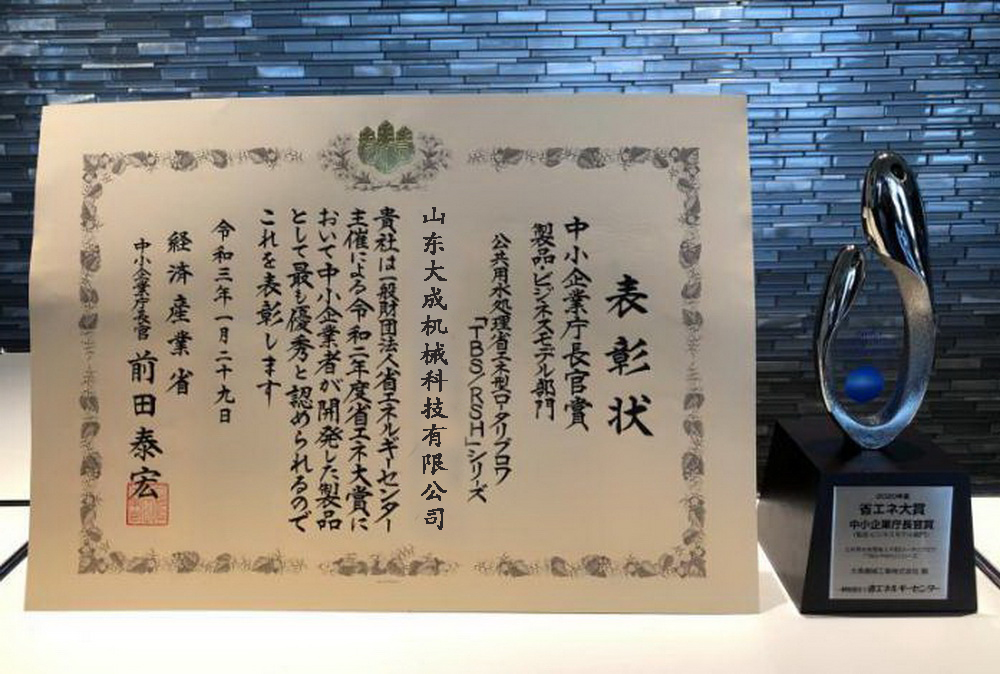 表彰状
中小企業庁長官賞
製品・ビジネスモデル部門
公共用水処理省エネ型ロータリブロワ
「TBS/RSH」シリーズ
山东大成机械科技有限公司
貴社は一般財団法人省エネルギーセンター
主催による令和二年度省エネ大賞に
おいて中小企業者が開発した製品
として最も優秀と認められるので
これを表彰します
令和三年一月二十九日
経済産業省
中小企業庁長官 前田泰宏
2020年度
省エネ大賞
中小企業庁長官賞
(製品・ビジネスモデル部門)
大晃機械工業株式会社 殿
一般財団法人 省エネルギーセンター